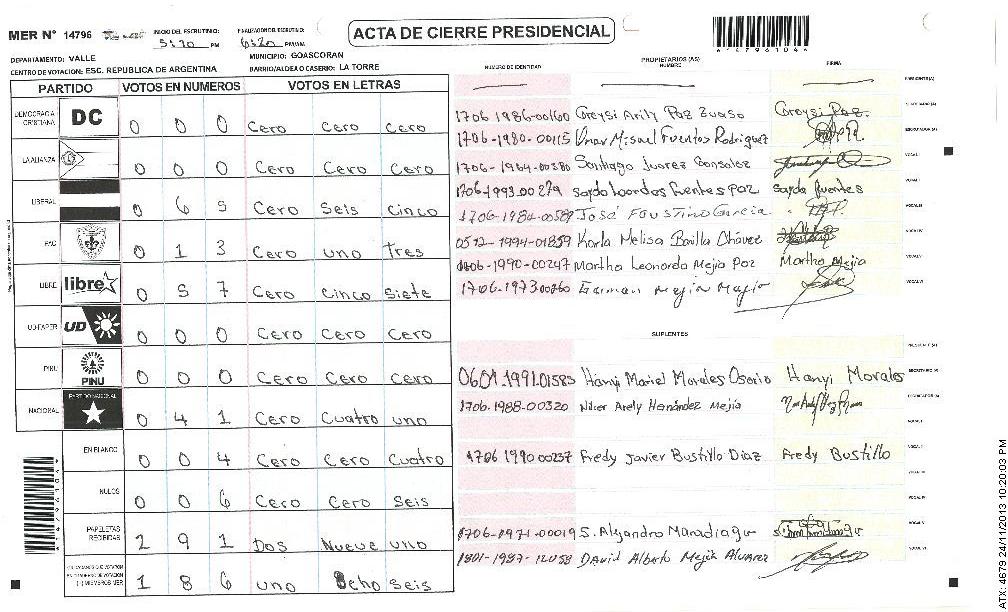 MER Nº 14796 INICIO DEL ESCRUTINIO: 5:20 PM FINALIZACION DEL ESCRUTINIO: 6:20 PM/AM
ACTA DE CIERRE PRESIDENCIAL
DEPARTAMENTO: VALLE MUNICIPIO: GOASCORAN
CENTRO DE VOTACION: ESC. REPUBLICA DE ARGENTINA BARRIO/ALDEA O CASERIO: LA TORRE
PARTIDO VOTOS EN NUMEROS VOTOS EN LETRAS
DEMOCRACIA CRISTIANA DC 0 0 0 Cero Cero Cero
LA ALIANZA 0 0 0 Cero Cero Cero
LIBERAL 0 6 5 Cero Seis Cinco
PAC 0 1 3 Cero uno tres
LIBRE libre 0 5 7 Cero Cinco Siete
UD-FAPER UD 0 0 0 Cero Cero Cero
PINU PINU 0 0 0 Cero Cero Cero
NACIONAL PARTIDO NACIONAL 0 4 1 Cero Cuatro uno
EN BLANCO 0 0 4 Cero Cero Cuatro
NULOS 0 0 6 Cero Cero Seis
PAPELETAS RECIBIDAS 2 9 1 Dos Nueve uno
1 8 6 uno Ocho Seis
PROPIETARIOS (AS)
NUMERO DE IDENTIDAD NOMBRE FIRMA
PRESIDENTE(A)
1706 1986-00160 Greysi Arily Paz Greysi Paz
1706-1980-00115 Misael Fuentes Rodriguez
1706-1964-00380 Santiago Juarez Gonsalez
1706-1993-00279 Sayda Lourdes fuentes Paz Sayda fuentes
1706-1984-00589 José Faustino Garcia
0512-1994-01859 Karla Melisa Bonilla Chávez
1990-00247 Martha Leonarda Mejia Paz Martha Mejia
1706-1973-00260 German Mejia Mejia
SUPLENTES
0601 1991.01583 Hanyi Mariel Morales Osorio Hanyi Morales
1706-1988-00320 Arely Hernández Mejía
1706 1990 00237 Fredy Javier Bustillo Diaz Fredy Bustillo
1706-1971-00019 S. Alejandro Maradiaga
David Alberto Mejía Alvarez
ATX: 4679 24/11/2013 10:20:03 PM